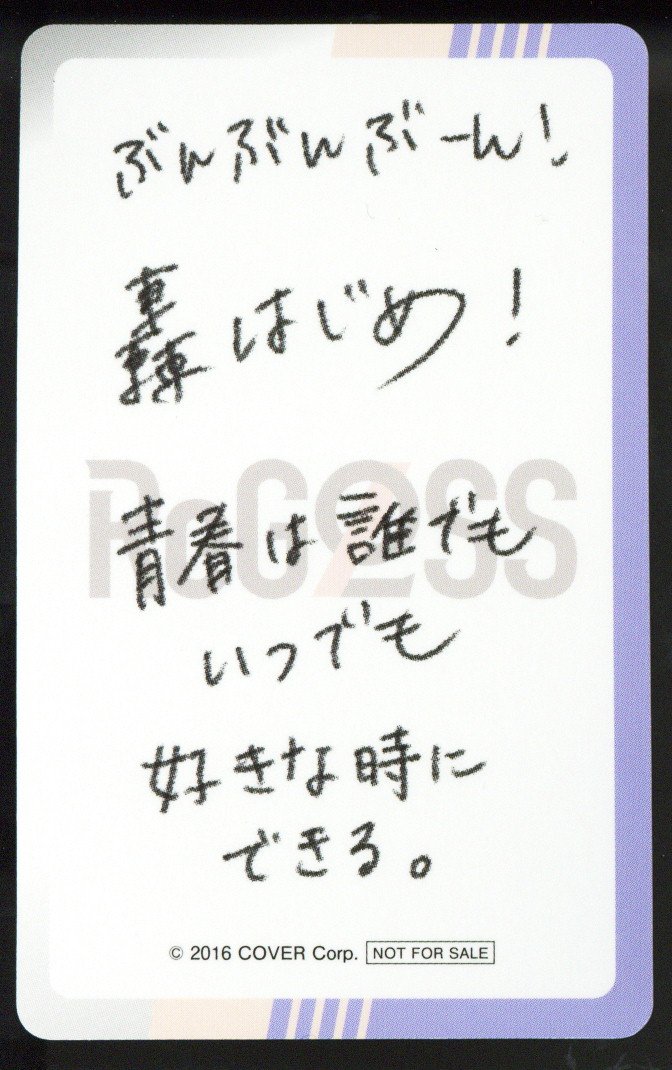 ぶんぶんぶーん!
轟はじめ!
ReGLOSS
青春は誰でも
いつでも
好きな時に
できる。
© 2016 COVER Corp. NOT FOR SALE